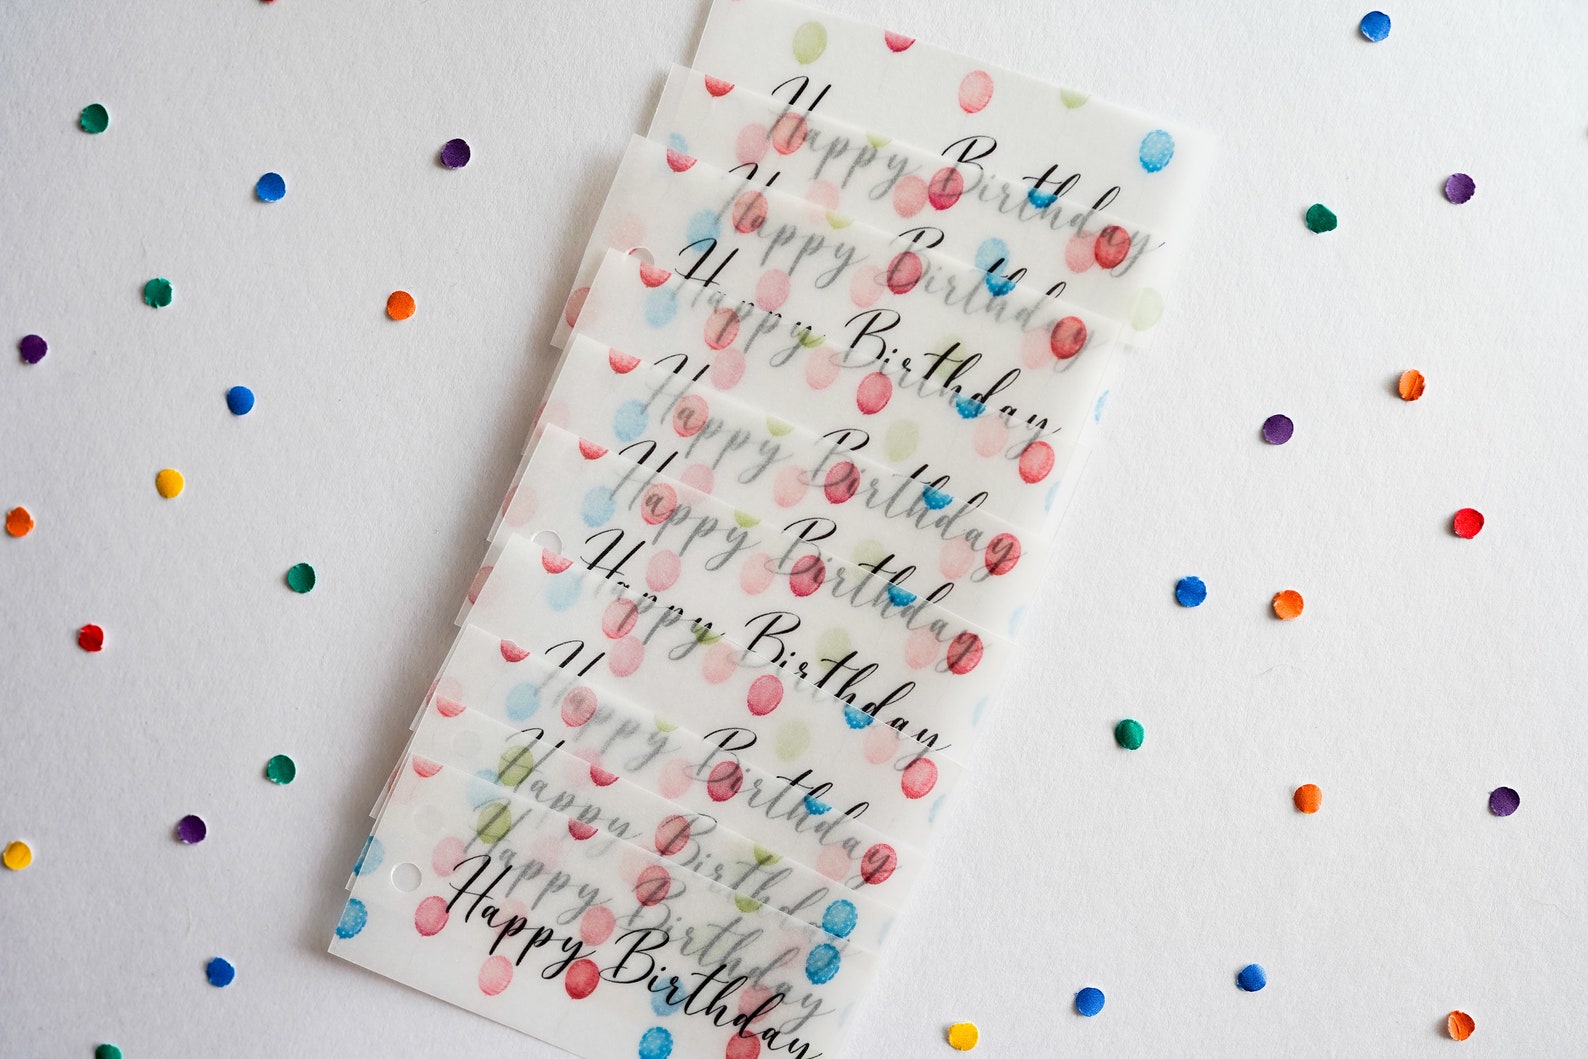 Happy Birthday
Happy Birthday
Happy Birthday
Happy Birthday
Happy Birthday
Happy Birthday
Happy Birthday
Happy Birthday
Happy Birthday
Happy Birthday